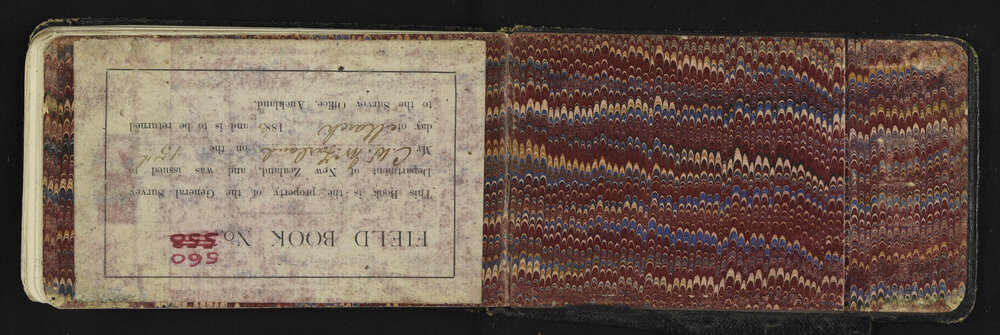 FIELD BOOK No. 558
560
This Book is the property of the General Survey
Department of New Zealand, and was issued to
Mr C. W. McFarland on the 15th
day of March 1885 and is to be returned
to the Survey Office, Auckland.